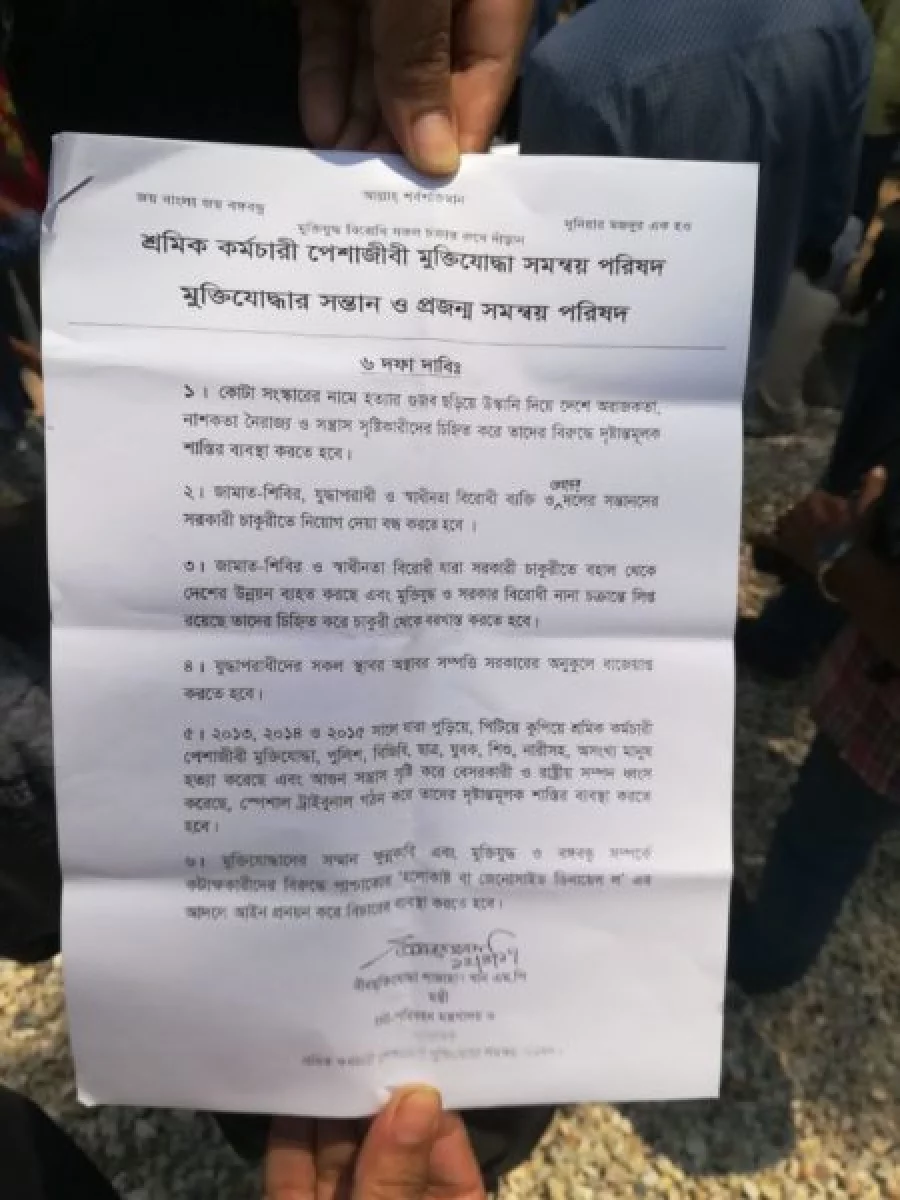 জয় বাংলা জয় বঙ্গবন্ধু
আল্লাহ সর্বশক্তিমান
দুনিয়ার মজদুর এক হও
মুক্তিযুদ্ধ বিরোধি সকল চক্রান্ত রুখে দাঁড়ান
শ্রমিক কর্মচারী পেশাজীবী মুক্তিযোদ্ধা সমন্বয় পরিষদ
মুক্তিযোদ্ধার সন্তান ও প্রজন্ম সমন্বয় পরিষদ
৬ দফা দাবিঃ
১। কোটা সংস্কারের নামে হত্যার গুজব ছড়িয়ে উস্কানি দিয়ে দেশে অরাজকতা,
নাশকতা নৈরাজ্য ও সন্ত্রাস সৃষ্টিকারীদের চিহ্নিত করে তাদের বিরুদ্ধে দৃষ্টান্তমূলক
শাস্তির ব্যবস্থা করতে হবে।
২। জামাত-শিবির, যুদ্ধাপরাধী ও স্বাধীনতা বিরোধী ব্যক্তি ও দলের সন্তানদের
সরকারী চাকুরীতে নিয়োগ দেয়া বন্ধ করতে হবে ।
৩। জামাত-শিবির ও স্বাধীনতা বিরোধী যারা সরকারী চাকুরীতে বহাল থেকে
দেশের উন্নয়ন ব্যহত করছে এবং মুক্তিযুদ্ধ ও সরকার বিরোধী নানা চক্রান্তে লিপ্ত
রয়েছে তাদের চিহ্নিত করে চাকুরী থেকে বরখাস্ত করতে হবে।
৪। যুদ্ধাপরাধীদের সকল স্থাবর অস্থাবর সম্পত্তি সরকারের অনুকুলে বাজেয়াপ্ত
করতে হবে।
৫। ২০১৩, ২০১৪ ও ২০১৫ সালে যারা পুড়িয়ে, পিটিয়ে কুপিয়ে শ্রমিক কর্মচারী
পেশাজীবী মুক্তিযোদ্ধা, পুলিশ, বিজিবি, ছাত্র, যুবক, শিশু, নারীসহ, অসংখ্য মানুষ
হত্যা করেছে এবং আগুন সন্ত্রাস সৃষ্টি করে বেসরকারী ও রাষ্ট্রীয় সম্পদ ধ্বংস
করেছে, স্পেশাল ট্রাইবুনাল গঠন করে তাদের দৃষ্টান্তমূলক শাস্তির ব্যবস্থা করতে
হবে।
৬। মুক্তিযোদ্ধাদের সম্মান ক্ষুন্নকারি এবং মুক্তিযুদ্ধ ও বঙ্গবন্ধু সম্পর্কে
কটাক্ষকারীদের বিরুদ্ধে পাশ্চাত্যের 'হলোকাষ্ট বা জেনোসাইড ডিনায়েল ল' এর
আদলে আইন প্রনয়ন করে বিচারের ব্যবস্থা করতে হবে।
বীরমুক্তিযোদ্ধা শাজাহান খান এম.পি
মন্ত্রী
নৌ-পরিবহন মন্ত্রণালয় ও